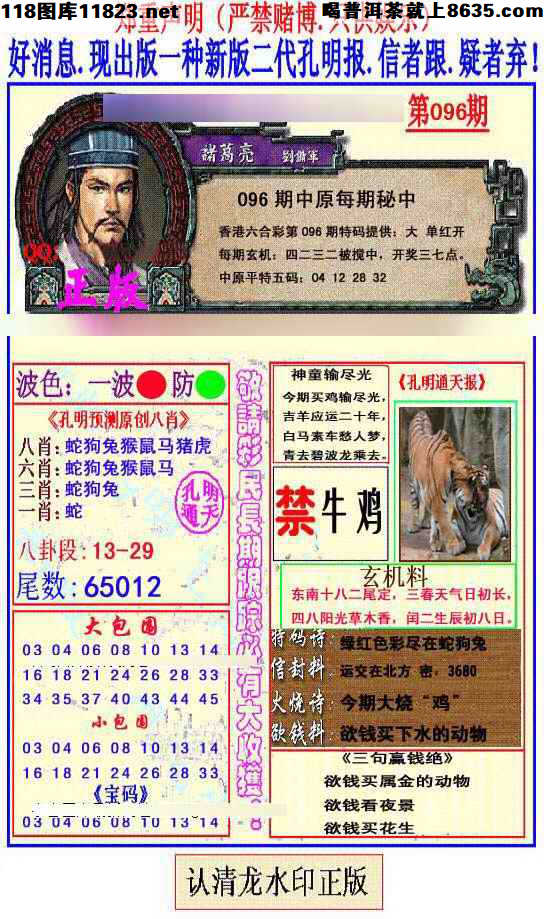 118图库11823.net
喝普洱茶就上8635.com
郑重声明（严禁赌博.只供娱乐）
好消息.现出版一种新版二代孔明报.信者跟.疑者弃!
第096期
諸葛亮 劉備軍
096 期中原每期秘中
香港六合彩第 096 期特码提供：大 单红开
每期玄机：四二三二被搅中，开奖三七点。
中原平特五码：04 12 28 32
正版
波色：一波 防
《孔明预测原创八肖》
八肖:蛇狗兔猴鼠马猪虎
六肖:蛇狗兔猴鼠马
三肖:蛇狗兔
一肖:蛇
孔明通天
八卦段:13-29
尾数:65012
大包围
03 04 06 08 10 13 14
16 18 21 24 26 28 33
34 35 37 40 43 44 45
小包围
03 04 06 08 10 13 14
16 18 21 24 26 28 33
《宝码》
03 04 06 08 10 13 14
敬請彩民長期跟踪必有大收獲!
神童输尽光
今期买鸡输尽光，
吉羊应运二十年，
白马素车愁人梦，
青去碧波龙乘去。
《孔明通天报》
禁牛鸡
玄机料
东南十八二尾定，三春天气日初长，
四八阳光草木香，闰二生辰初八日。
特码诗:绿红色彩尽在蛇狗兔
信封料.运交在北方 密，3680
火烧诗:今期大烧“鸡”
欲钱料.欲钱买下水的动物
《三句赢钱绝》
欲钱买属金的动物
欲钱看夜景
欲钱买花生
认清龙水印正版